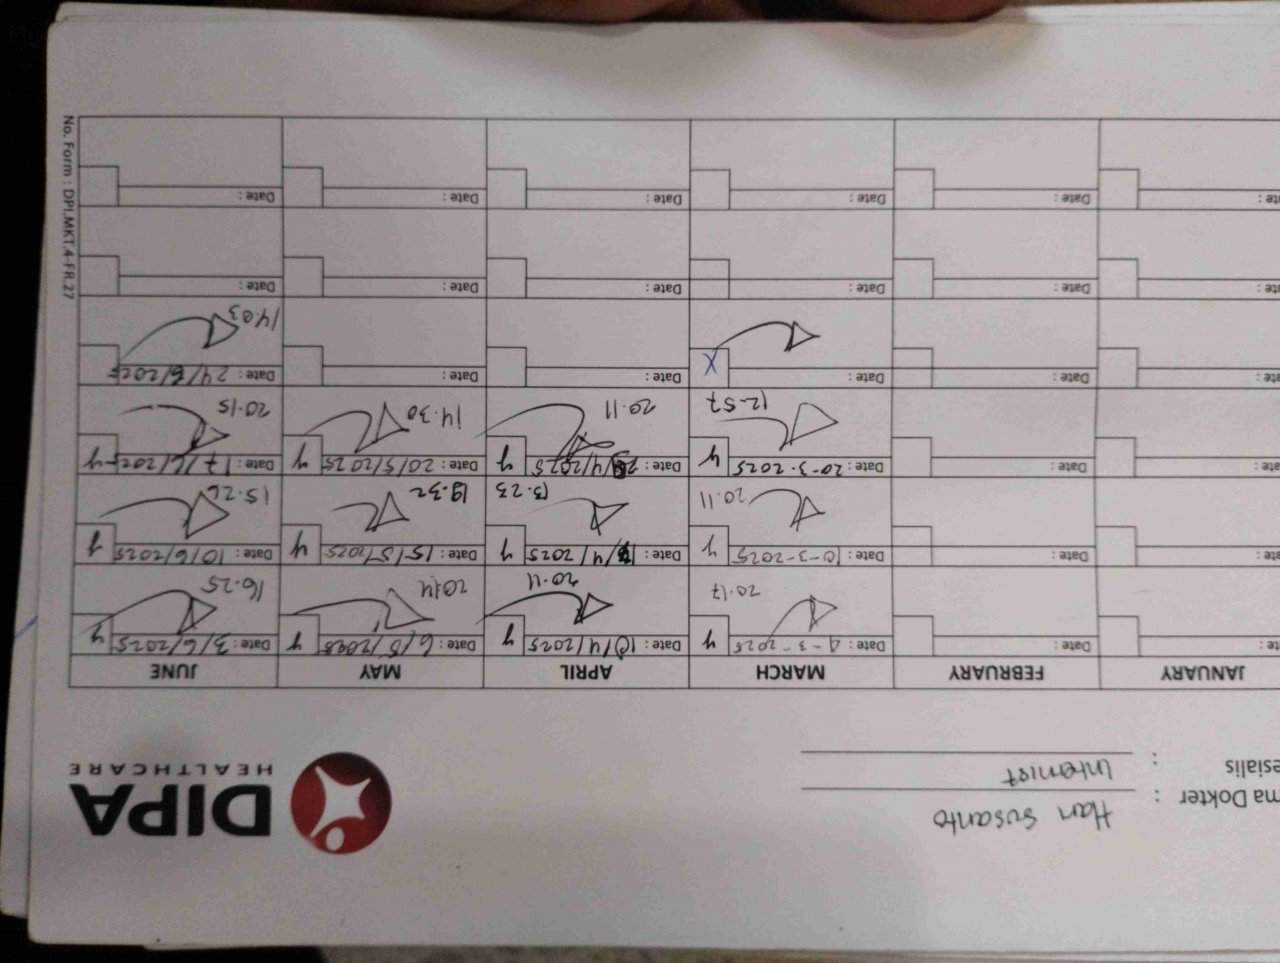 ma Dokter : Hari Susanto
esialis : Internist
DIPA
HEALTHCARE
JANUARY FEBRUARY MARCH APRIL MAY JUNE
te : Date : Date : 4-3-2025 y Date : 10/4/2025 y Date : 6/5/2025 y Date : 3/6/2025 y
20.17 20.11 20.14 16.25
te : Date : Date : 10-3-2025 y Date : /4/2025 y Date : 15/5/2025 y Date : 10/6/2025 y
20.11 13.23 19.32 15.26
te : Date : Date : 20-3-2025 y Date : /4/2025 y Date : 20/5/2025 y Date : 17/6/2025 y
12.57 20.11 14.30 20.15
te : Date : Date : X Date : Date : Date : 24/6/2025
14.03
te : Date : Date : Date : Date : Date :
te : Date : Date : Date : Date : Date :
No. Form : DPI.MKT.4-FR.27